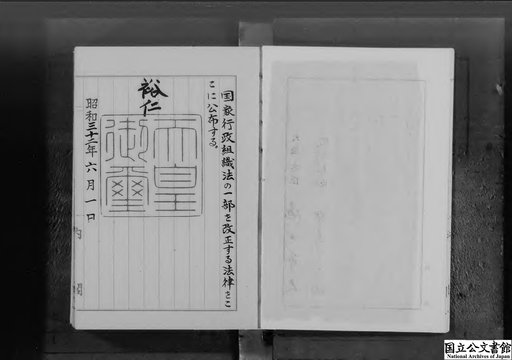 国家行政組織法の一部を改正する法律をこ
こに公布する。
裕仁
天皇
御璽
昭和三十二年六月一日
内閣
国立公文書館
National Archives of Japan